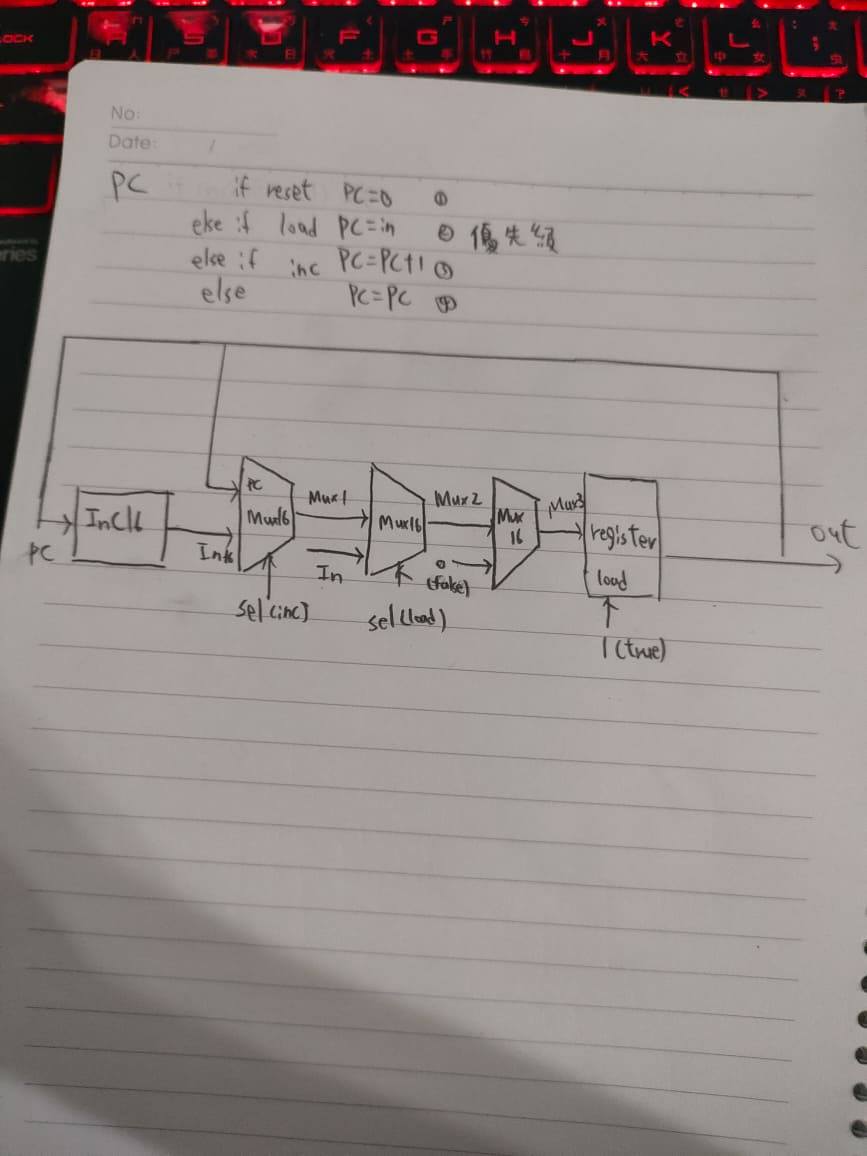 LOCK
A
S
D
F
G
H
J
K
L
;
ries
No:
Date: /
PC if reset PC=0 ①
else if load PC=in ② 優先級
else if inc PC=PC+1 ③
else PC=PC ④
PC
InC16
In16
PC
Mux16
sel(inc)
Mux1
In
Mux16
sel(load)
Mux2
0
(fake)
Mux
16
Mux3
register
load
1(true)
out